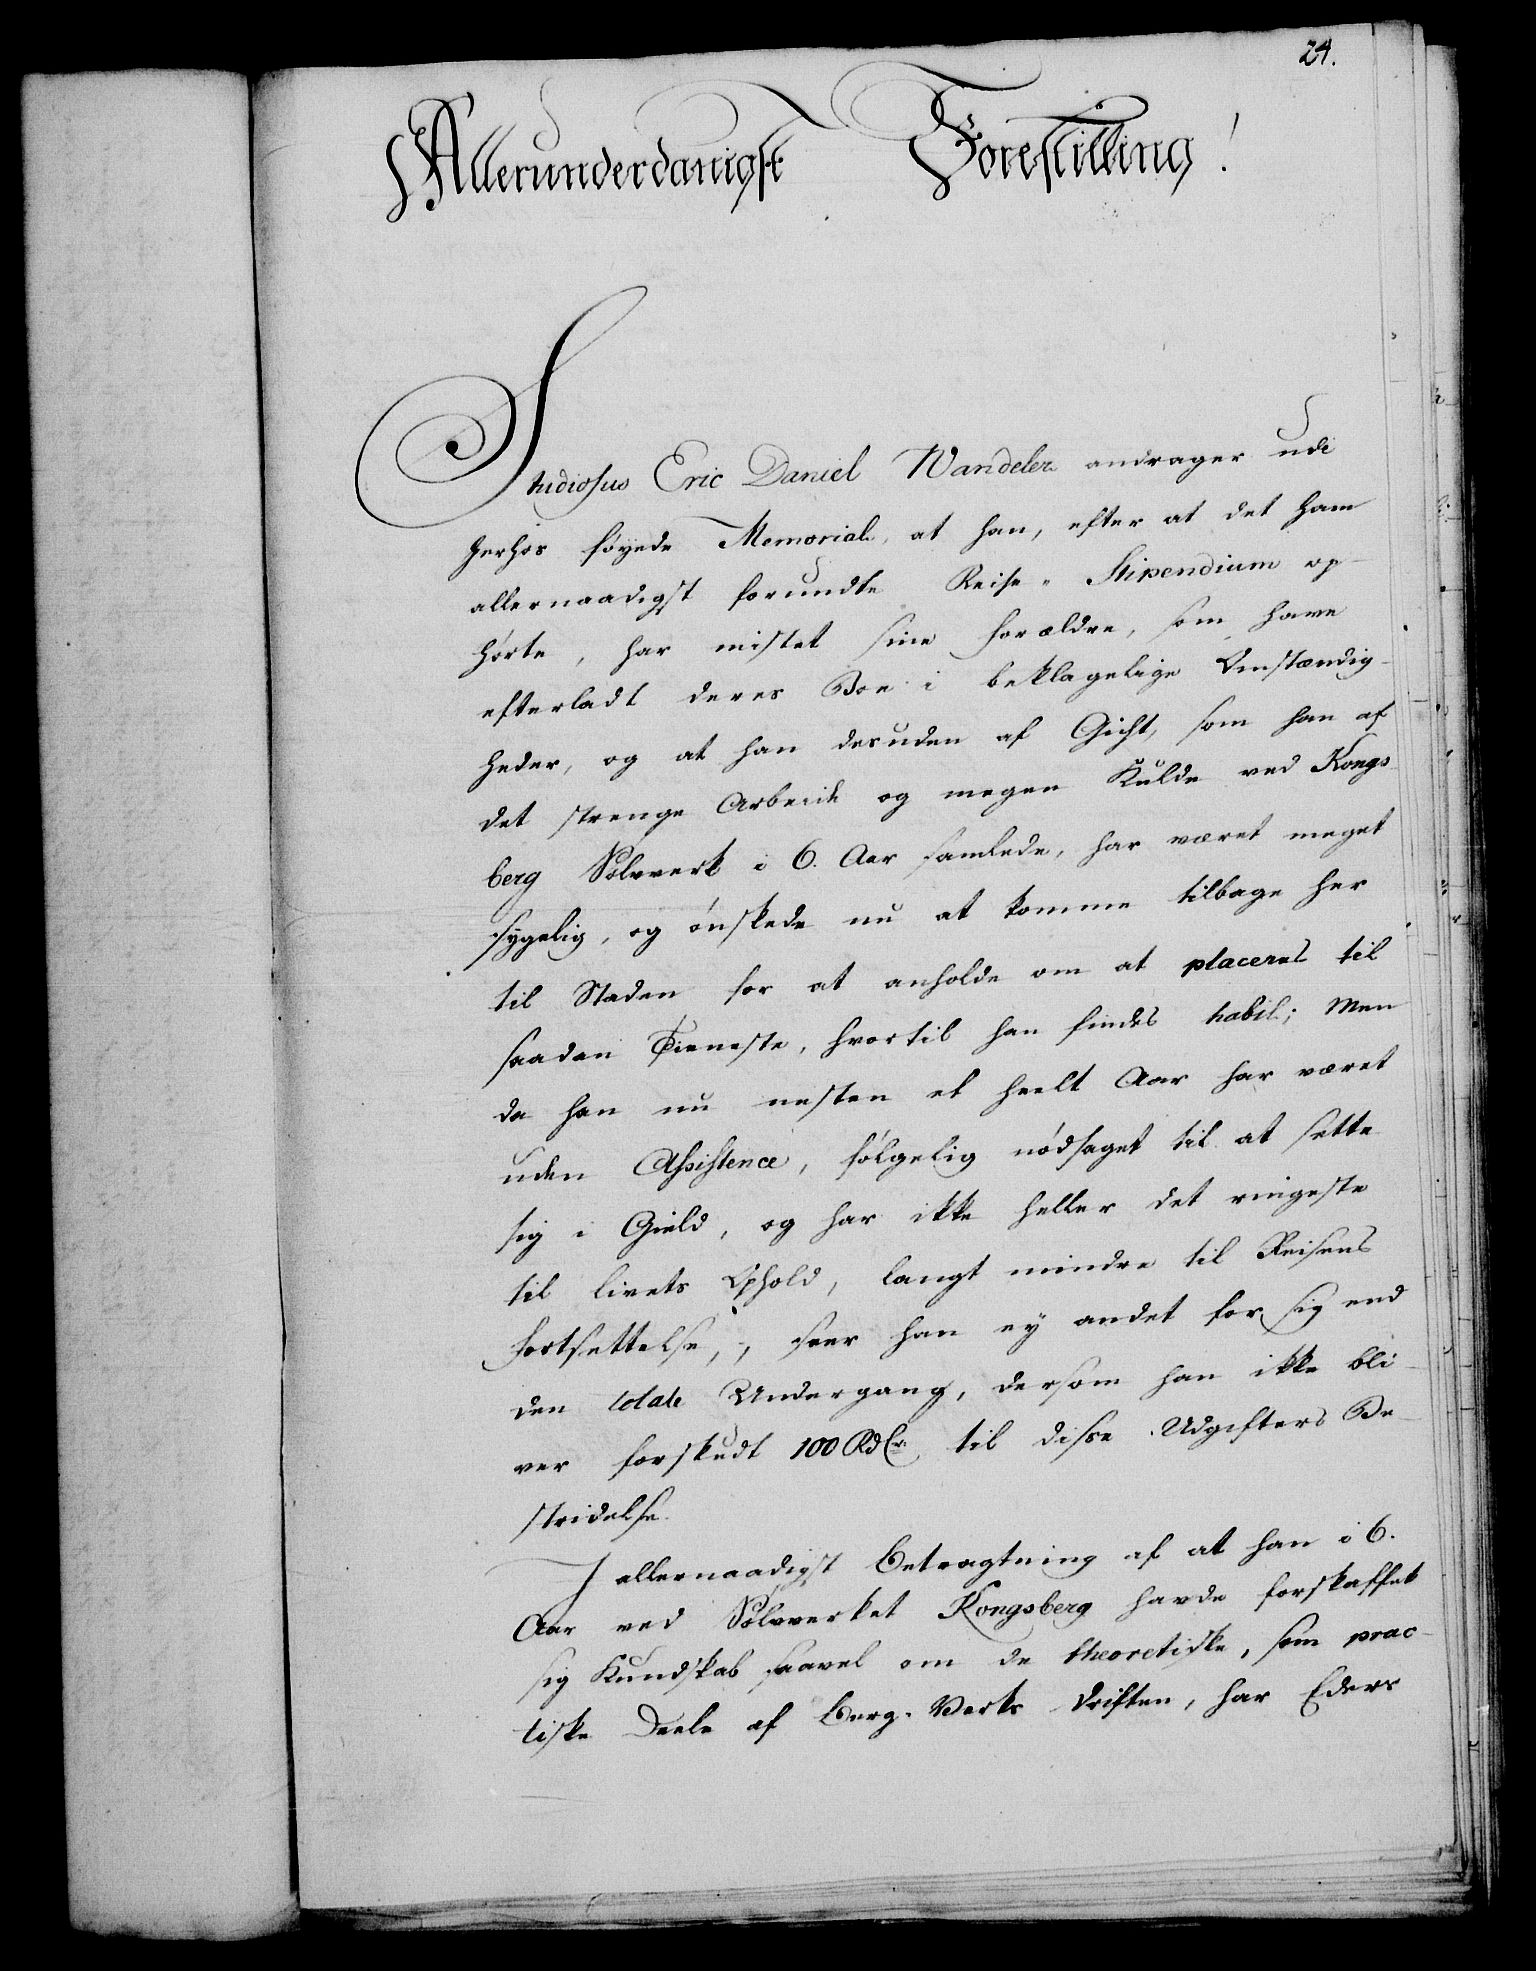 24.
Allerunderdanigst Forestilling!
Studiosus Eric Daniel Wandeler andrager udi
herhos føyede Memorial, at han, efter at det ham
allernaadigst forundte Reise-Stipendium op-
hørte, har mistet sine forældre, som have
efterladt deres Boe i beklagelige Omstændig-
heder, og at han desuden af Gicht, som han af
det strenge Arbeide og megen Kulde ved Kongs-
berg Sølvverk i 6. Aar samlede, har været meget
sygelig, og ønskede nu at komme tilbage her
til Staden for at anholde om at placeres til
saadan Tieneste, hvortil han findes habil; Men
da han nu nesten et heelt Aar har været
uden Assistence, følgelig nødsaget til at sette
sig i Gield, og har ikke heller det ringeste
til livets Ophold, langt mindre til Reisens
fortsettelse, seer han ey andet for sig end
den totale Undergang, dersom han ikke bli-
ver forskudt 100 Rdlr. til disse Udgifters Be-
stridelse.
I allernaadigst betragtning af at han i 6.
Aar ved Sølvverket Kongsberg havde forskaffet
sig Kundskab saavel om de theoretiske, som prac-
tiske Deele af Berg-Verks Driften, har Eders